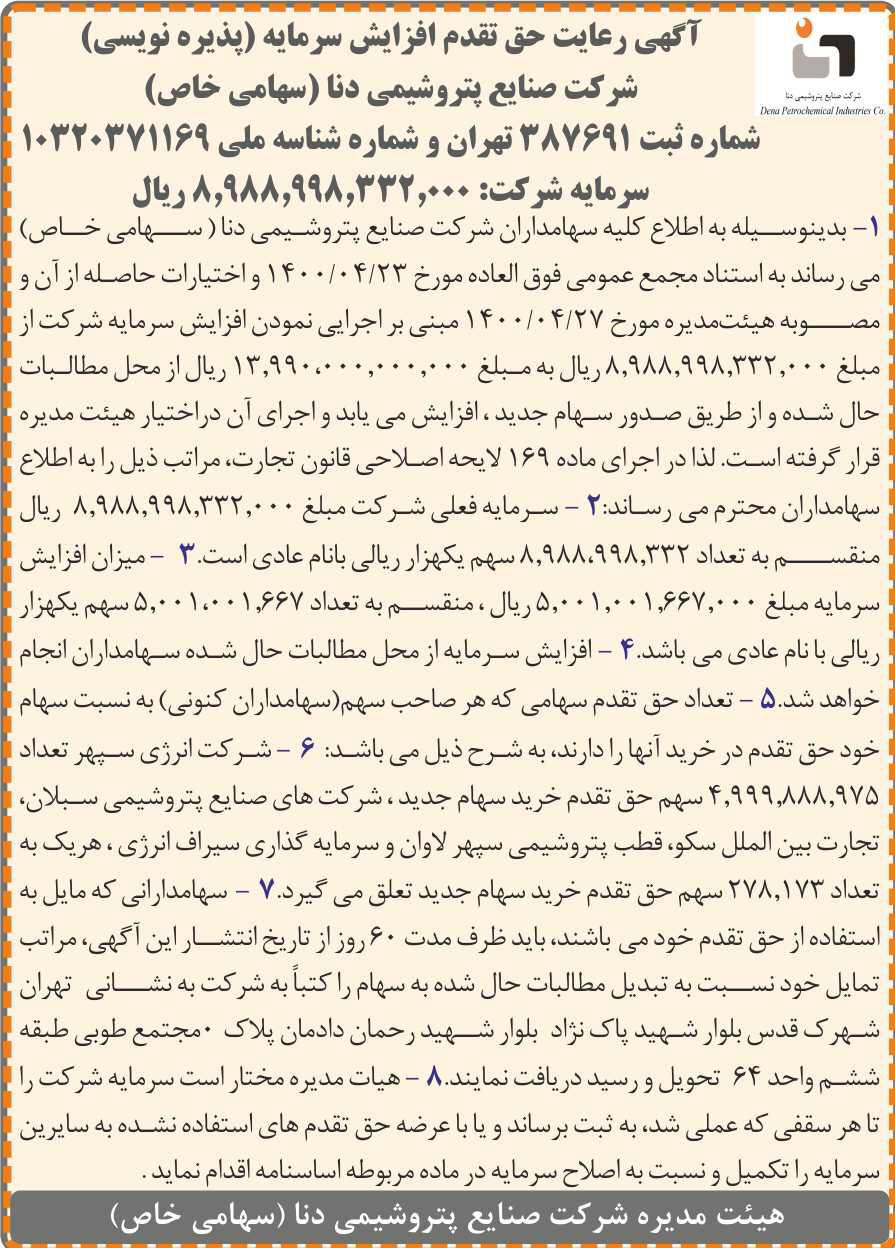 آگهی رعایت حق تقدم افزایش سرمایه (پذیره نویسی)
شرکت صنایع پتروشیمی دنا (سهامی خاص)
شرکت صنایع پتروشیمی دنا
Dena Petrochemical Industries Co.
شماره ثبت ۳۸۷۶۹۱ تهران و شماره شناسه ملی ۱۰۳۲۰۳۷۱۱۶۹
سرمایه شرکت: ۸,۹۸۸,۹۹۸,۳۳۲,۰۰۰ ریال
۱- بدینوسیله به اطلاع کلیه سهامداران شرکت صنایع پتروشیمی دنا ( سهامی خاص)
می رساند به استناد مجمع عمومی فوق العاده مورخ ۱۴۰۰/۰۴/۲۳ و اختیارات حاصله از آن و
مصوبه هیئت‌مدیره مورخ ۱۴۰۰/۰۴/۲۷ مبنی بر اجرایی نمودن افزایش سرمایه شرکت از
مبلغ ۸,۹۸۸,۹۹۸,۳۳۲,۰۰۰ ریال به مبلغ ۱۳,۹۹۰،۰۰۰,۰۰۰,۰۰۰ ریال از محل مطالبات
حال شده و از طریق صدور سهام جدید ، افزایش می یابد و اجرای آن دراختیار هیئت مدیره
قرار گرفته است. لذا در اجرای ماده ۱۶۹ لایحه اصلاحی قانون تجارت، مراتب ذیل را به اطلاع
سهامداران محترم می رساند:۲ - سرمایه فعلی شرکت مبلغ ۸,۹۸۸,۹۹۸,۳۳۲,۰۰۰ ریال
منقسم به تعداد ۸,۹۸۸،۹۹۸,۳۳۲ سهم یکهزار ریالی بانام عادی است.۳ - میزان افزایش
سرمایه مبلغ ۵,۰۰۱,۰۰۱,۶۶۷,۰۰۰ ریال ، منقسم به تعداد ۵,۰۰۱،۰۰۱,۶۶۷ سهم یکهزار
ریالی با نام عادی می باشد.۴ - افزایش سرمایه از محل مطالبات حال شده سهامداران انجام
خواهد شد.۵ - تعداد حق تقدم سهامی که هر صاحب سهم(سهامداران کنونی) به نسبت سهام
خود حق تقدم در خرید آنها را دارند، به شرح ذیل می باشد: ۶ - شرکت انرژی سپهر تعداد
۴,۹۹۹,۸۸۸,۹۷۵ سهم حق تقدم خرید سهام جدید ، شرکت های صنایع پتروشیمی سبلان،
تجارت بین الملل سکو، قطب پتروشیمی سپهر لاوان و سرمایه گذاری سیراف انرژی ، هریک به
تعداد ۲۷۸,۱۷۳ سهم حق تقدم خرید سهام جدید تعلق می گیرد.۷ - سهامدارانی که مایل به
استفاده از حق تقدم خود می باشند، باید ظرف مدت ۶۰ روز از تاریخ انتشار این آگهی، مراتب
تمایل خود نسبت به تبدیل مطالبات حال شده به سهام را کتباً به شرکت به نشانی تهران
شهرک قدس بلوار شهید پاک نژاد بلوار شهید رحمان دادمان پلاک ۰مجتمع طوبی طبقه
ششم واحد ۶۴ تحویل و رسید دریافت نمایند.۸ - هیات مدیره مختار است سرمایه شرکت را
تا هر سقفی که عملی شد، به ثبت برساند و یا با عرضه حق تقدم های استفاده نشده به سایرین
سرمایه را تکمیل و نسبت به اصلاح سرمایه در ماده مربوطه اساسنامه اقدام نماید .
هیئت مدیره شرکت صنایع پتروشیمی دنا (سهامی خاص)